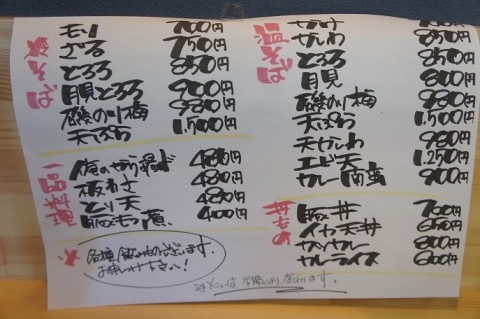 冷そば
もり 700円
ざる 750円
とろろ 850円
月見とろろ 900円
磯の川梅 930円
天ざる 1,500円
一品料理
480円
板わさ 430円
とり天 480円
豚もつ煮 400円
※各種飲み物ございます。
お申し付け下さい!
温そば
かけ
かしわ 850円
とろろ 850円
月見 800円
磯の川梅 930円
天ぷら 1,500円
天かしわ 980円
エビ天 1,250円
カレー南蛮 900円
丼もの
豚丼 700円
イカ天丼 650円
カツカレー 800円
カレーライス 600円